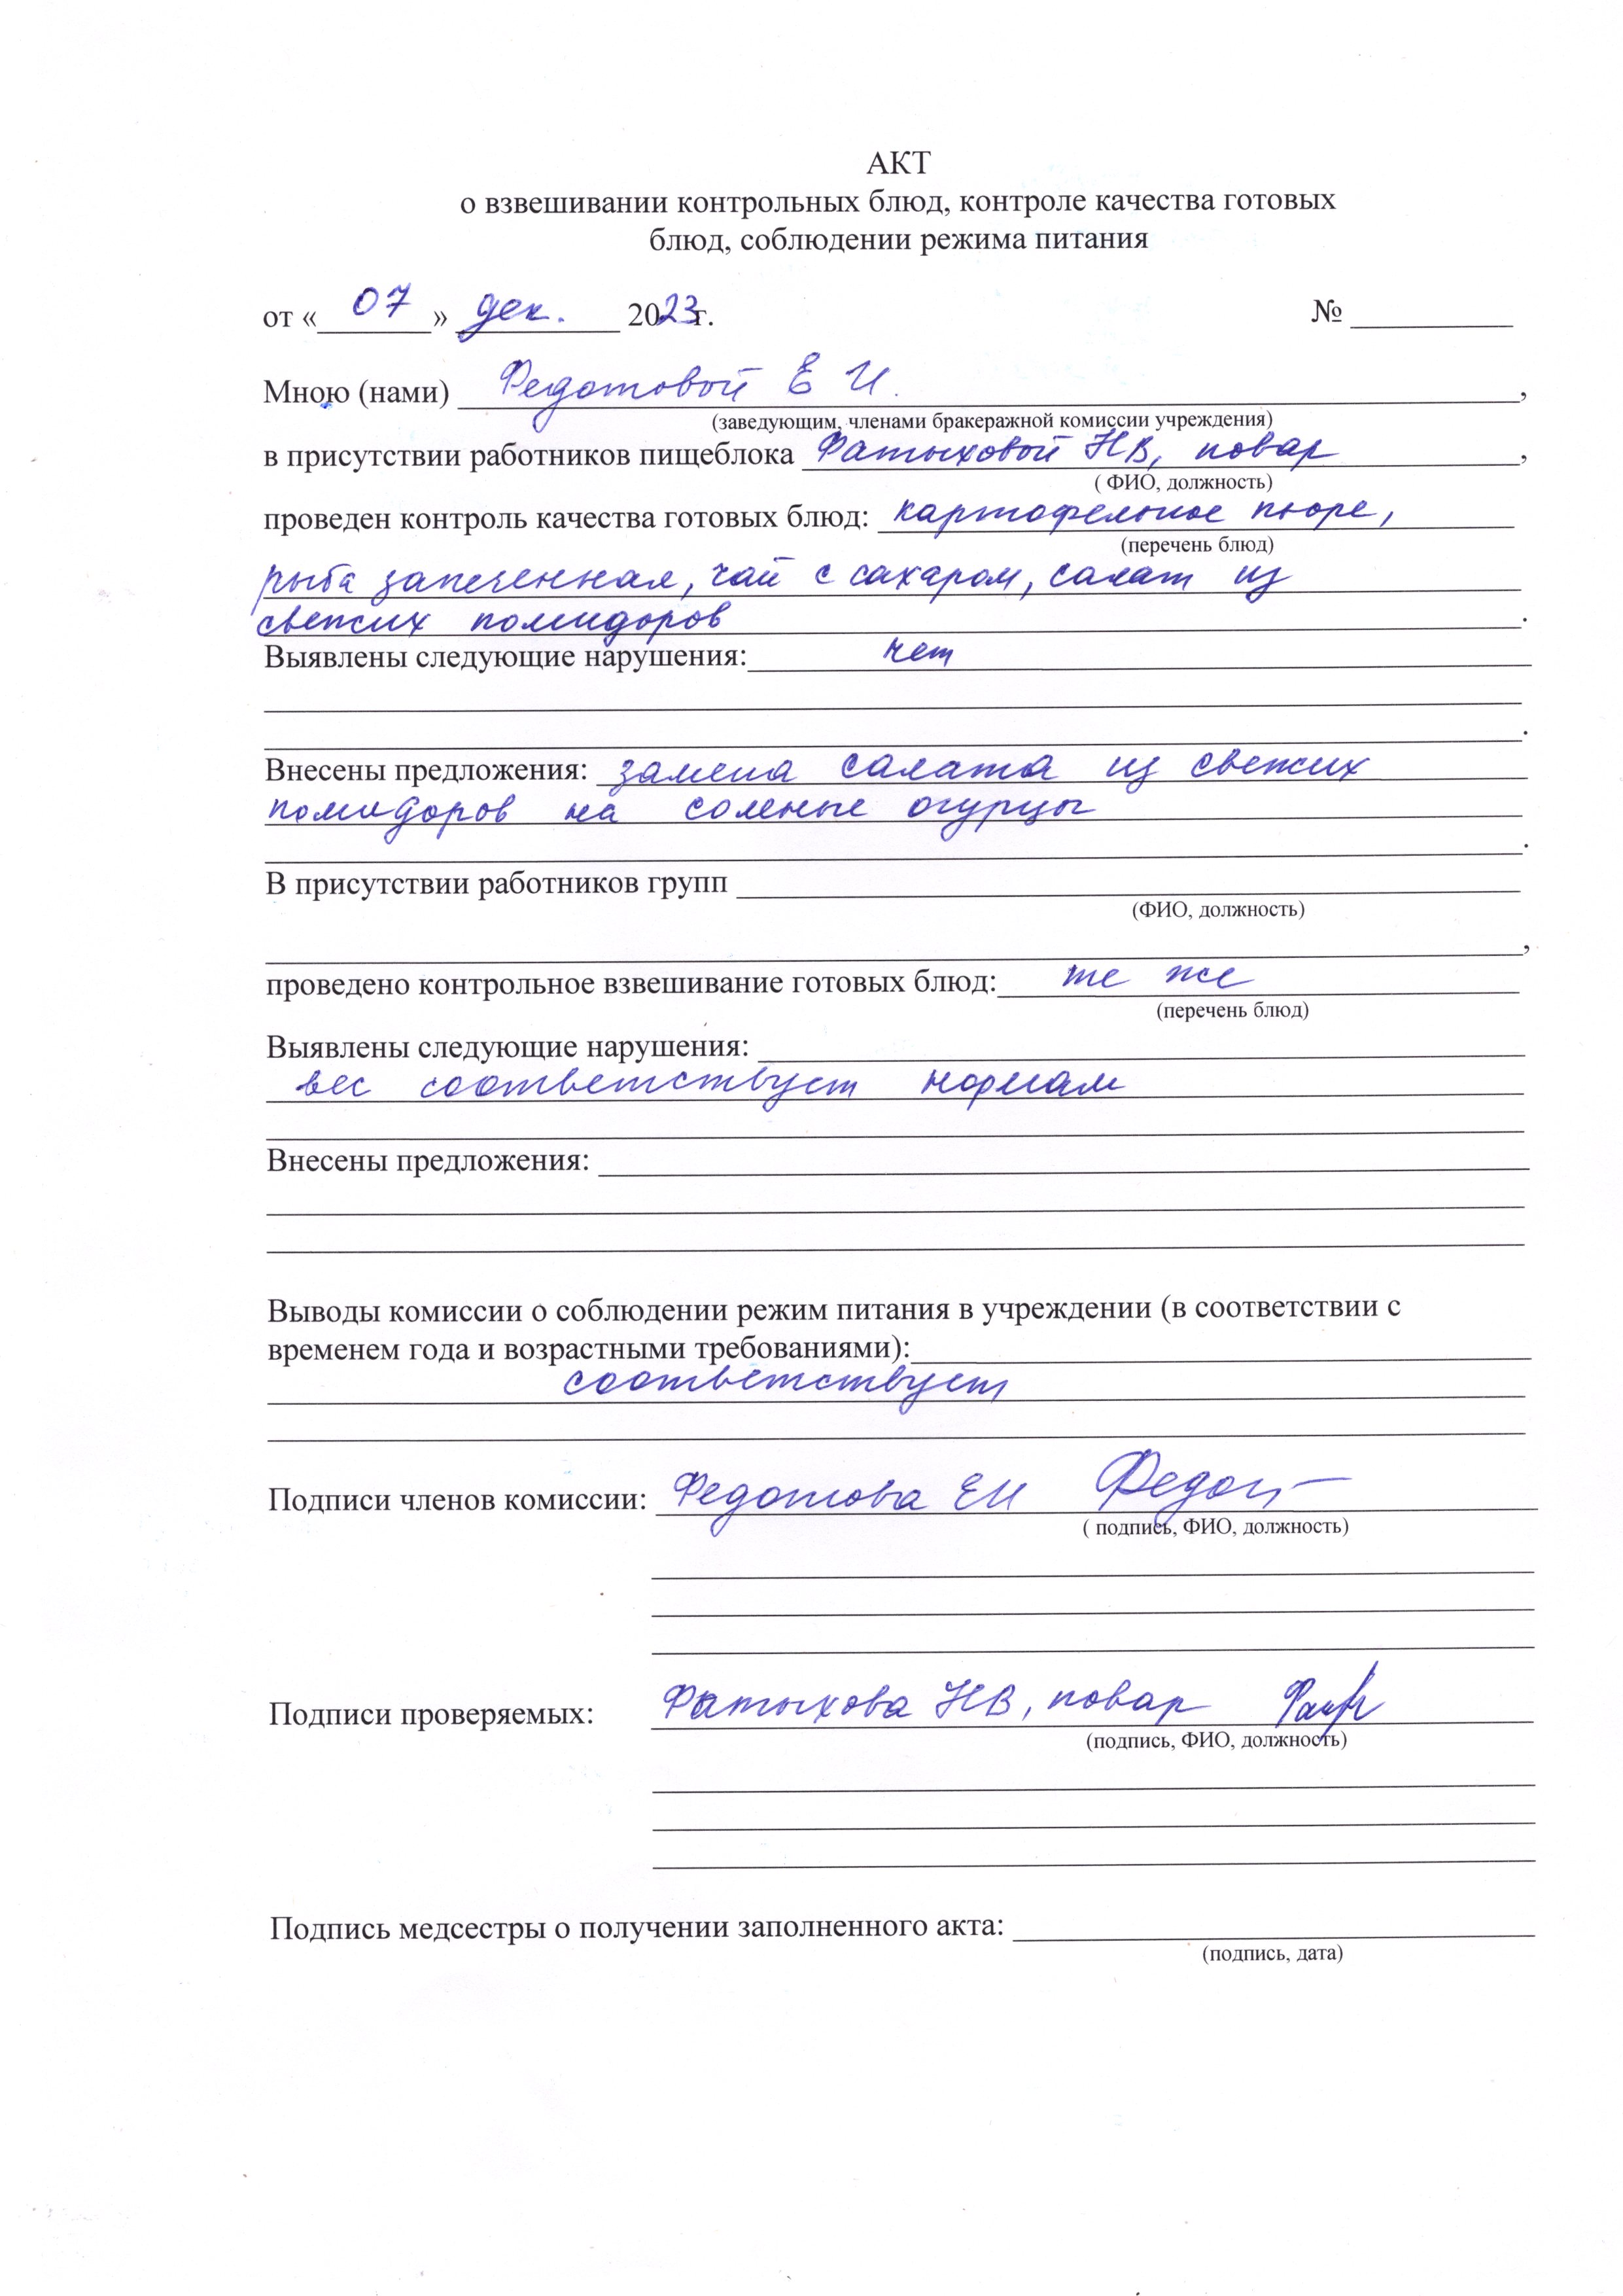 АКТ
о взвешивании контрольных блюд, контроле качества готовых
блюд, соблюдении режима питания
от «07» дек. 2023г. № ________
Мною (нами) Федотовой Е И.,
(заведующим, членами бракеражной комиссии учреждения)
в присутствии работников пищеблока Фатыховой НВ, повар,
( ФИО, должность)
проведен контроль качества готовых блюд: картофельное пюре,
(перечень блюд)
рыба запеченная, чай с сахаром, салат из
свежих помидоров.
Выявлены следующие нарушения: нет
.
Внесены предложения: замена салата из свежих
помидоров на соленые огурцы
.
В присутствии работников групп
(ФИО, должность)
,
проведено контрольное взвешивание готовых блюд: те же
(перечень блюд)
Выявлены следующие нарушения:
вес соответствует нормам
Внесены предложения:
Выводы комиссии о соблюдении режим питания в учреждении (в соответствии с
временем года и возрастными требованиями):
соответствует
Подписи членов комиссии: Федотова ЕИ
( подпись, ФИО, должность)
Подписи проверяемых: Фатыхова НВ, повар
(подпись, ФИО, должность)
Подпись медсестры о получении заполненного акта:
(подпись, дата)